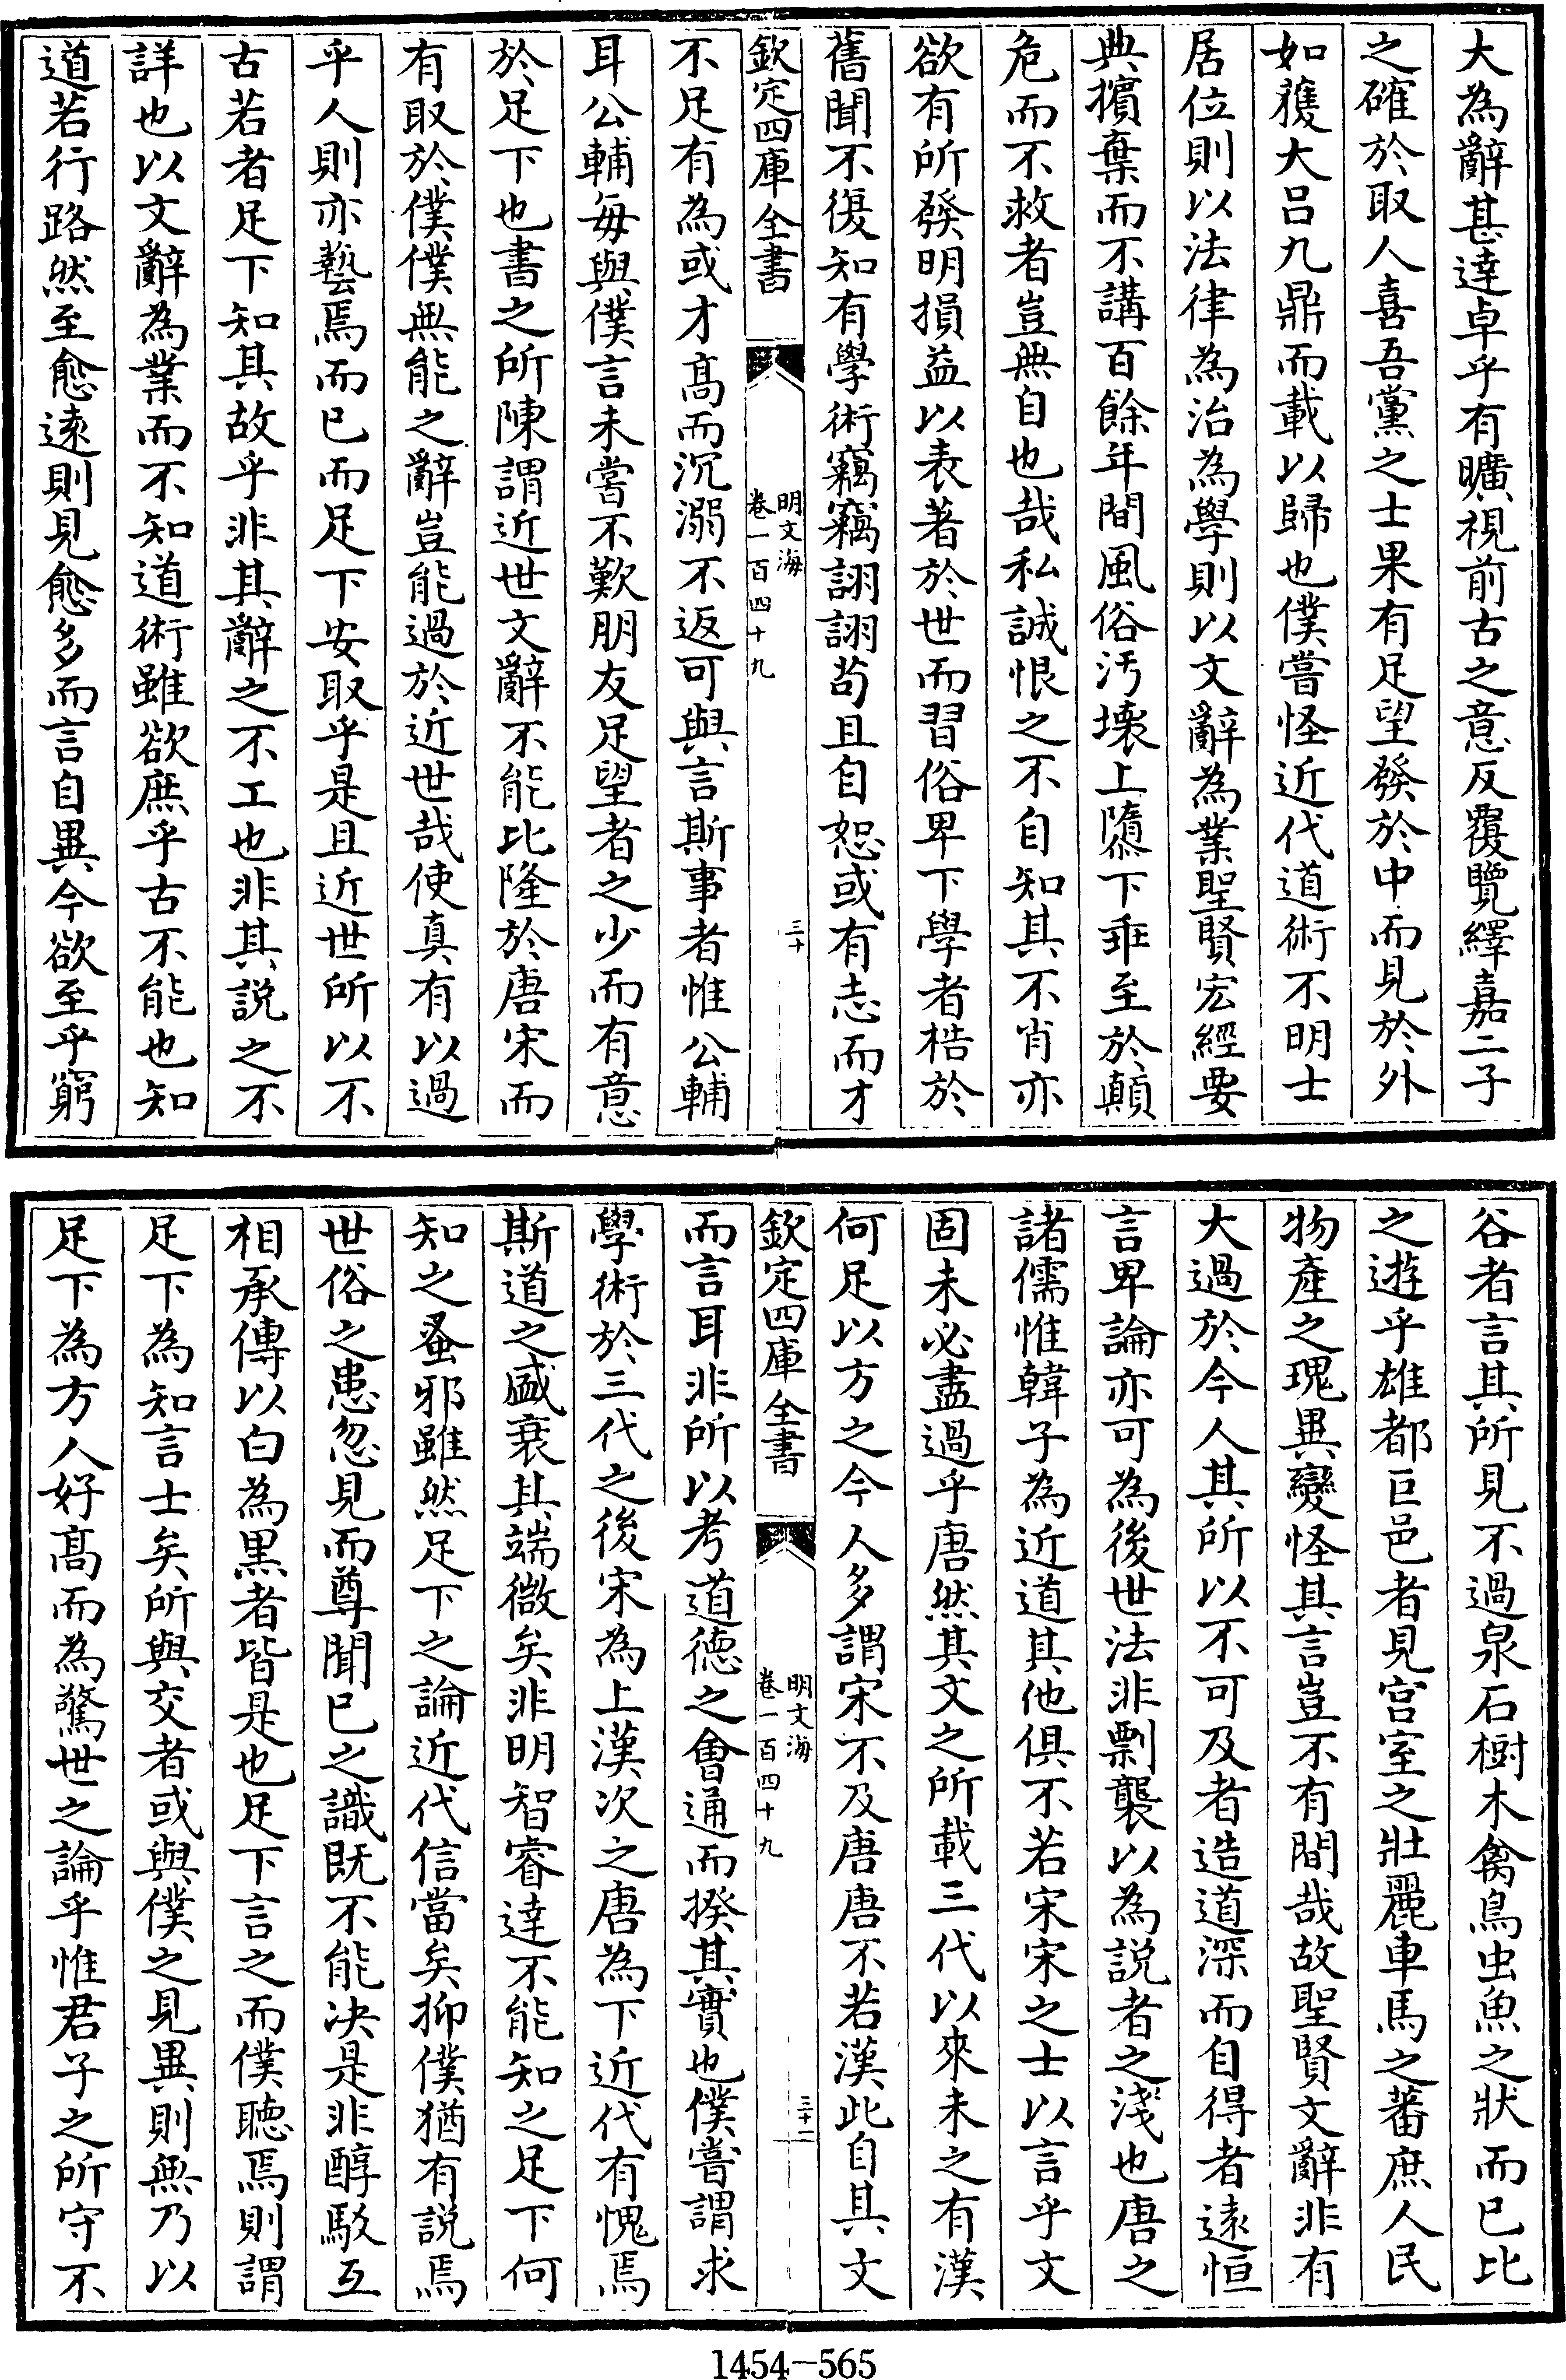 大為辭甚達卓乎有曠視前古之意反覆覽繹嘉二子
之確於取人喜吾黨之士果有足望發於中而見於外
如獲大呂九鼎而載以歸也僕嘗怪近代道術不明士
居位則以法律為治為學則以文辭為業聖賢宏經要
典擯棄而不講百餘年間風俗汚壞上隳下乖至於顛
危而不救者豈無自也哉私誠恨之不自知其不肖亦
欲有所發明損益以表著於世而習俗卑下學者梏於
舊聞不復知有學術竊竊詡詡苟且自恕或有志而才
欽定四庫全書
明文海
卷一百四十九
三十
不足有為或才高而沉溺不返可與言斯事者惟公輔
耳公輔每與僕言未嘗不歎朋友足望者之少而有意
於足下也書之所陳謂近世文辭不能比隆於唐宋而
有取於僕僕無能之辭豈能過於近世哉使真有以過
乎人則亦藝焉而已而足下安取乎是且近世所以不
古若者足下知其故乎非其辭之不工也非其説之不
詳也以文辭為業而不知道術雖欲庶乎古不能也知
道若行路然至愈遠則見愈多而言自異今欲至乎窮
谷者言其所見不過泉石樹木禽鳥虫魚之狀而已比
之遊乎雄都巨邑者見宫室之壯麗車馬之蕃庶人民
物產之瑰異變怪其言豈不有間哉故聖賢文辭非有
大過於今人其所以不可及者造道深而自得者遠恒
言卑論亦可為後世法非剽襲以為説者之淺也唐之
諸儒惟韓子為近道其他俱不若宋宋之士以言乎文
固未必盡過乎唐然其文之所載三代以來未之有漢
何足以方之今人多謂宋不及唐唐不若漢此自其文
欽定四庫全書
明文海
卷一百四十九
三十二
而言耳非所以考道德之會通而揆其實也僕嘗謂求
學術於三代之後宋為上漢次之唐為下近代有愧焉
斯道之盛衰其端微矣非明智睿達不能知之足下何
知之蚤邪雖然足下之論近代信當矣抑僕猶有説焉
世俗之患忽見而尊聞已之識既不能決是非醇駁互
相承傳以白為黒者皆是也足下言之而僕聽焉則謂
足下為知言士矣所與交者或與僕之見異則無乃以
足下為方人好高而為驚世之論乎惟君子之所守不
1454-565